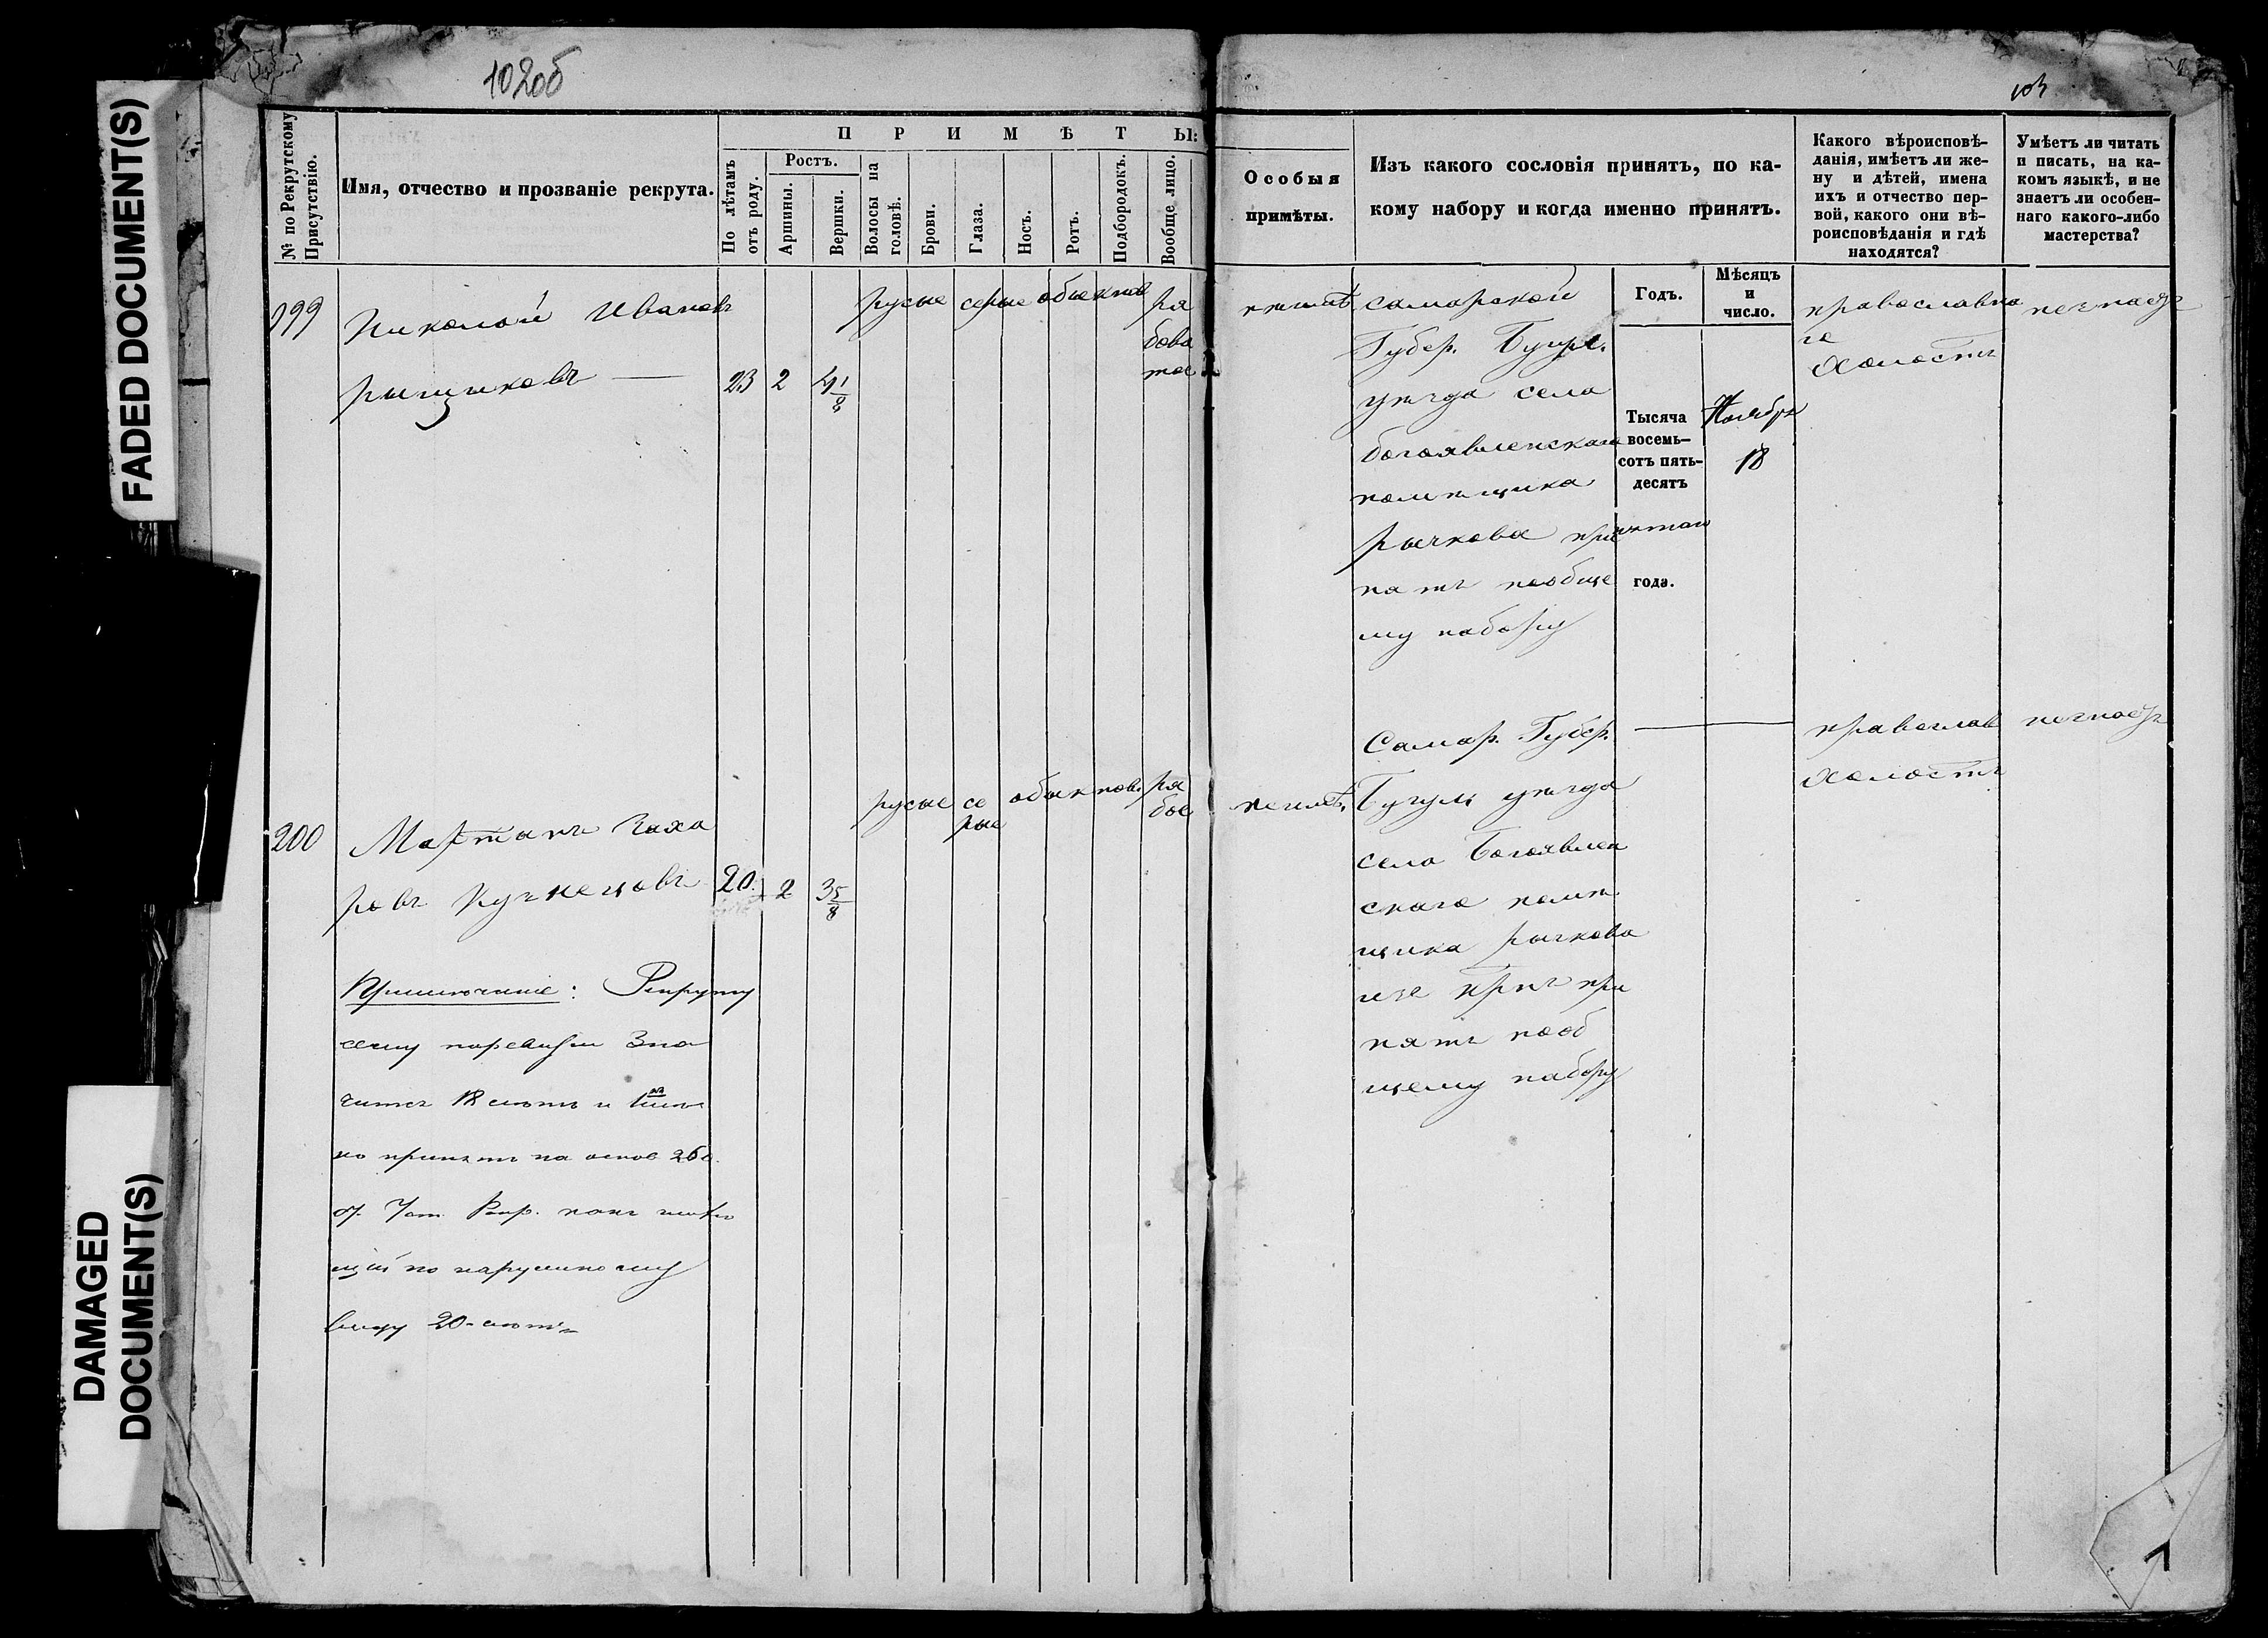 FADED DOCUMENT(S)
DAMAGED
DOCUMENT(S)
102об
103
№ по Рекрутскому
Присутствію.
Имя, отчество и прозваніе рекрута.
ПРИМѢТЫ:
По лѣтамъ
отъ роду.
Ростъ.
Аршины.
Вершки.
Волосы на
головѣ.
Брови.
Глаза.
Носъ.
Ротъ.
Подбородокъ.
Вообще лицо.
Особыя
примѣты.
Изъ какого сословія принятъ, по ка-
кому набору и когда именно принятъ.
Какого вѣроисповѣ-
данія, имѣетъ ли же-
ну и дѣтей, имена
ихъ и отчество пер-
вой, какого они вѣ-
роисповѣданія и гдѣ
находятся?
Умѣетъ ли читать
и писать, на ка-
комъ языкѣ, и не
знаетъ ли особен-
наго какого-либо
мастерства?
Годъ.
Мѣсяцъ
и
число.
199
Николай Ивановъ
23 2 4 1/8
русые серые обыкнов ря
бова
тое
самарской
Губер.
уѣзда села
богоявленскаго
помѣщика
рычкова при
нятъ пообще
му набору
Тысяча
восемь-
сотъ пять-
десятъ
года.
Ноября
18
православна
го
Холостъ
незнаетъ
200
Мартанъ Заха
ровъ Кузнецовъ
20 2 3 5/8
русые се
рые
обыкнов.
ря
бое
Самар. Губер.
Бугул уѣзда
села Богоявлен
скаго помѣ
щика рычкова
при
нятъ пооб
щему набору
православ
Холостъ
незнаетъ
Примѣчаніе: Рекруту
сему поревизіи Зна
читъ 18 лѣтъ и
но принятъ на основ 260.
Уст. Рекр. какъ имѣю
щій по наружному
виду 20-лѣтъ